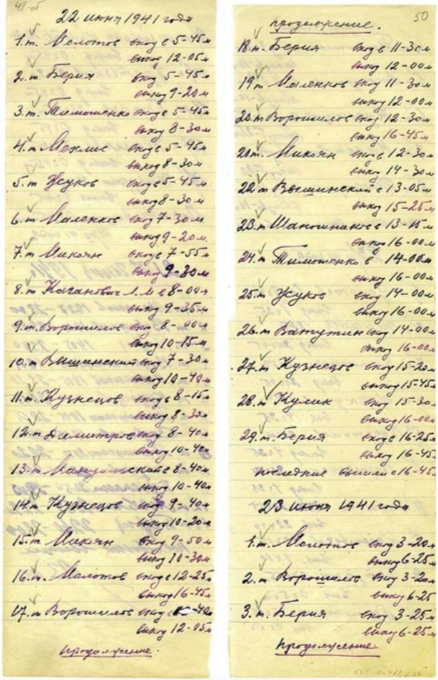 22 июня 1941 года
1. т. Молотов вход в 5-45 м
выход 12-05 м
2. т. Берия вход 5-45 м
выход 9-20 м
3. т. Тимошенко вход в 5-45 м
выход 8-30 м
4. т. Мехлис вход в 5-45 м
выход 8-30 м
5. т. Жуков вход в 5-45 м
выход 8-30 м
6. т. Маленков вход 7-30 м
выход 9-20 м
7. т. Микоян вход в 7-55 м
выход 9-30 м
8. т. Каганович Л.М в 8-00 м
выход 9-35 м
9. т. Ворошилов вход 8-00 м
выход 10-15 м
10. т. Вышинский вход 7-30 м
выход 10-40 м
11. т. Кузнецов вход в 8-15 м
выход 8-30 м
12. т. Димитров вход 8-40 м
выход 10-40 м
13. т. Мануильский в 8-40 м
выход 10-40 м
14. т. Кузнецов вход 9-40 м
выход 10-20 м
15. т. Микоян вход 9-50 м
выход 10-30 м
16. т. Молотов вход в 12-25 м
выход 16-45 м
17. т. Ворошилов вход 40 м
выход 12-05 м
продолжение.
50
продолжение.
18. т. Берия вход в 11-30 м
выход 12-00 м
19. т. Маленков вход 11-30 м
выход 12-00 м
20. т. Ворошилов вход 12-30 м
выход 16-45 м
21. т. Микоян вход в 12-30 м
выход 14-30 м
22. т. Вышинский в 13-05 м
выход 15-25 м
23. т. Шапошников в 13-15 м
выход 16-00 м
24. т. Тимошенко в 14-00 м
выход 16-00 м
25. т. Жуков вход 14-00 м
выход 16-00 м
26. т. Ватутин вход 14-00 м
выход 16-00 м
27. т. Кузнецов вход 15-20 м
выход 15-45 м
28. т. Кулик вход 15-30 м
выход 16-00 м
29. т. Берия вход в 16-25 м
выход 16-45 м
Последние вышли в 16-45 м
23 июня 1941 года
1. т. Молотов вход 3-20 м
выход 6-25 м
2. т. Ворошилов вход 3-20 м
выход 6-25
3. т. Берия вход 3-25 м
выход 6-25 м
продолжение.